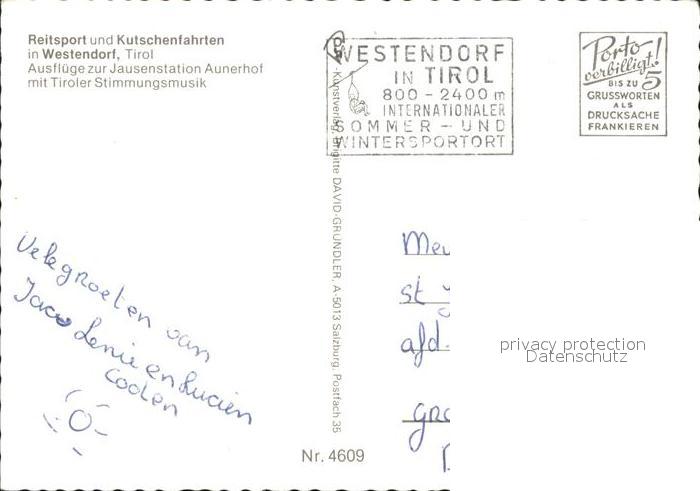 Reitsport und Kutschenfahrten
in Westendorf, Tirol
Ausflüge zur Jausenstation Aunerhof
mit Tiroler Stimmungsmusik
WESTENDORF
IN TIROL
800 - 2400 m
INTERNATIONALER
SOMMER - UND
WINTERSPORTORT
Porto
verbilligt!
BIS ZU 5
GRUSSWORTEN
ALS
DRUCKSACHE
FRANKIEREN
-Kunstverlag Brigitte DAVID-GRÜNDLER, A-5013 Salzburg, Postfach 35
Vele groeten van
Jaco Lenie en Lucien
Coolen
Mev
st
afd.
gro
privacy protection
Datenschutz
Nr. 4609